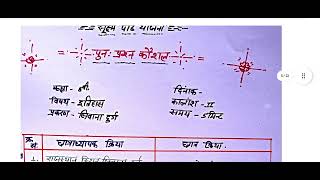 सूक्ष्म पाठ योजना
पुनः प्रश्न कौशल
कक्षा - 8वीं
दिनांक -
विषय - इतिहास
कालांश - II
प्रकरण - सिवाना दुर्ग
समय - 5 मिनट
क्र. सं.
छात्राध्यापक क्रिया
छात्र क्रिया.